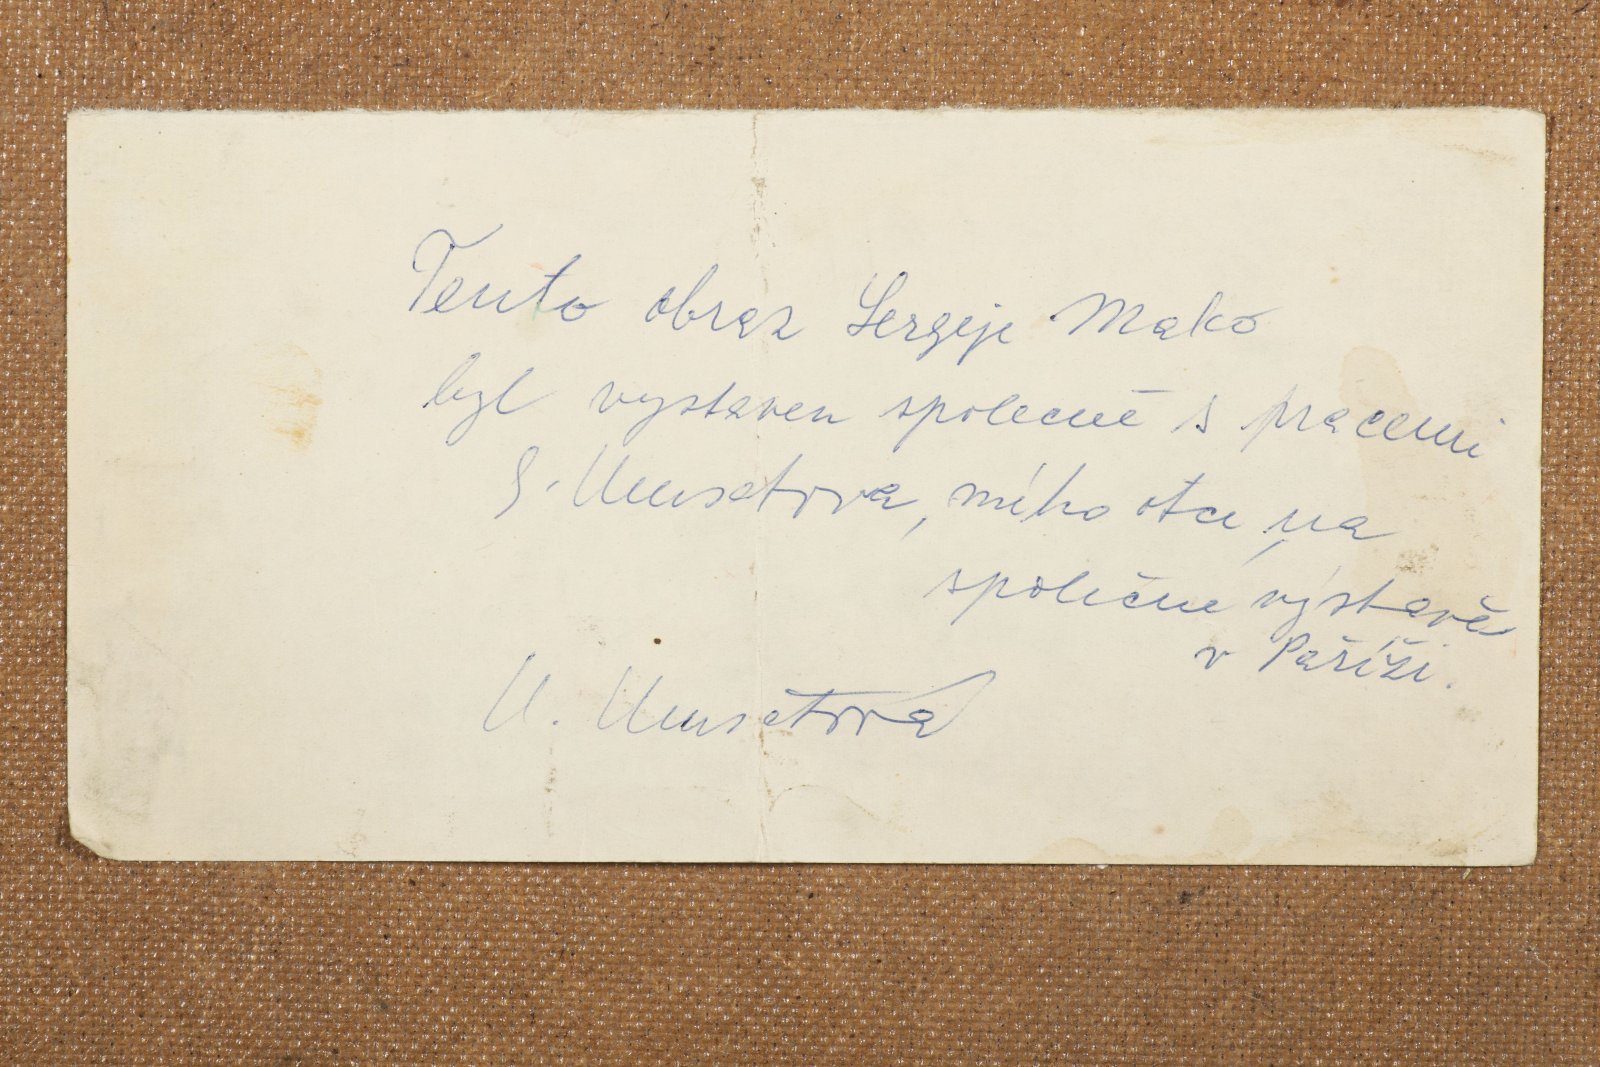 Tento obraz Sergeje Mako
byl vystaven společně s pracemi
G. Musatova, mého otce na
společné výstavě
v Paříži.
M. Musatová